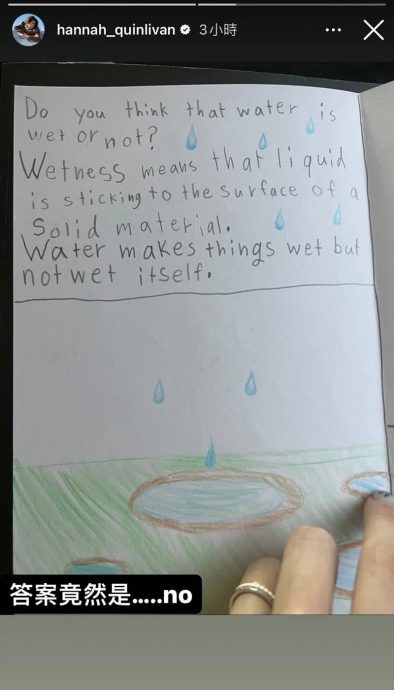 hannah_quinlivan 3小時
Do you think that water is
wet or not?
Wetness means that liquid
is sticking to the surface of a
Solid material.
Water makes things wet but
not wet itself.
答案竟然是.....no